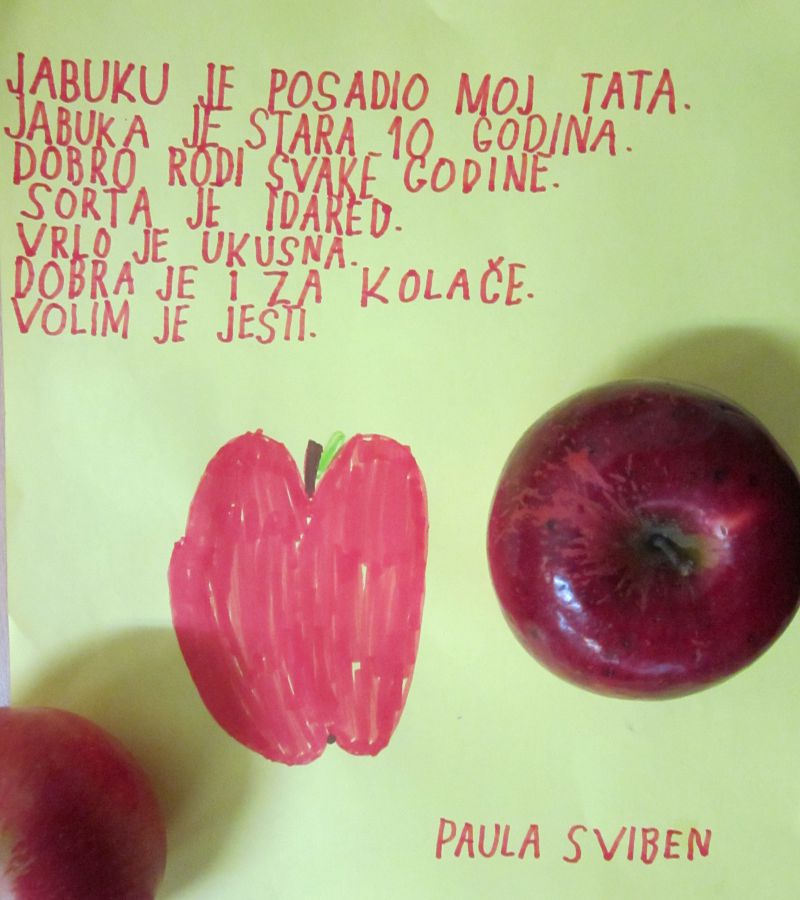 JABUKU JE POSADIO MOJ TATA.
JABUKA JE STARA 10 GODINA.
DOBRO RODI SVAKE GODINE.
SORTA JE IDARED.
VRLO JE UKUSNA.
DOBRA JE I ZA KOLAČE.
VOLIM JE JESTI.
PAULA SVIBEN